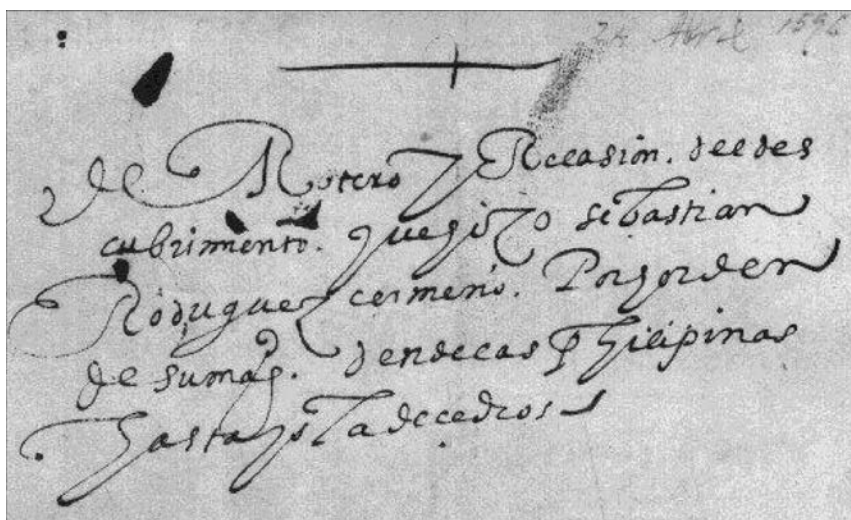 24 Abril 1596
De Rotero y Relasion. del des
cubrimiento. que hizo sebastian
Rodriguez cermeño. Por horden
de su mag. dende las Philipinas
hasta ysla de cedros